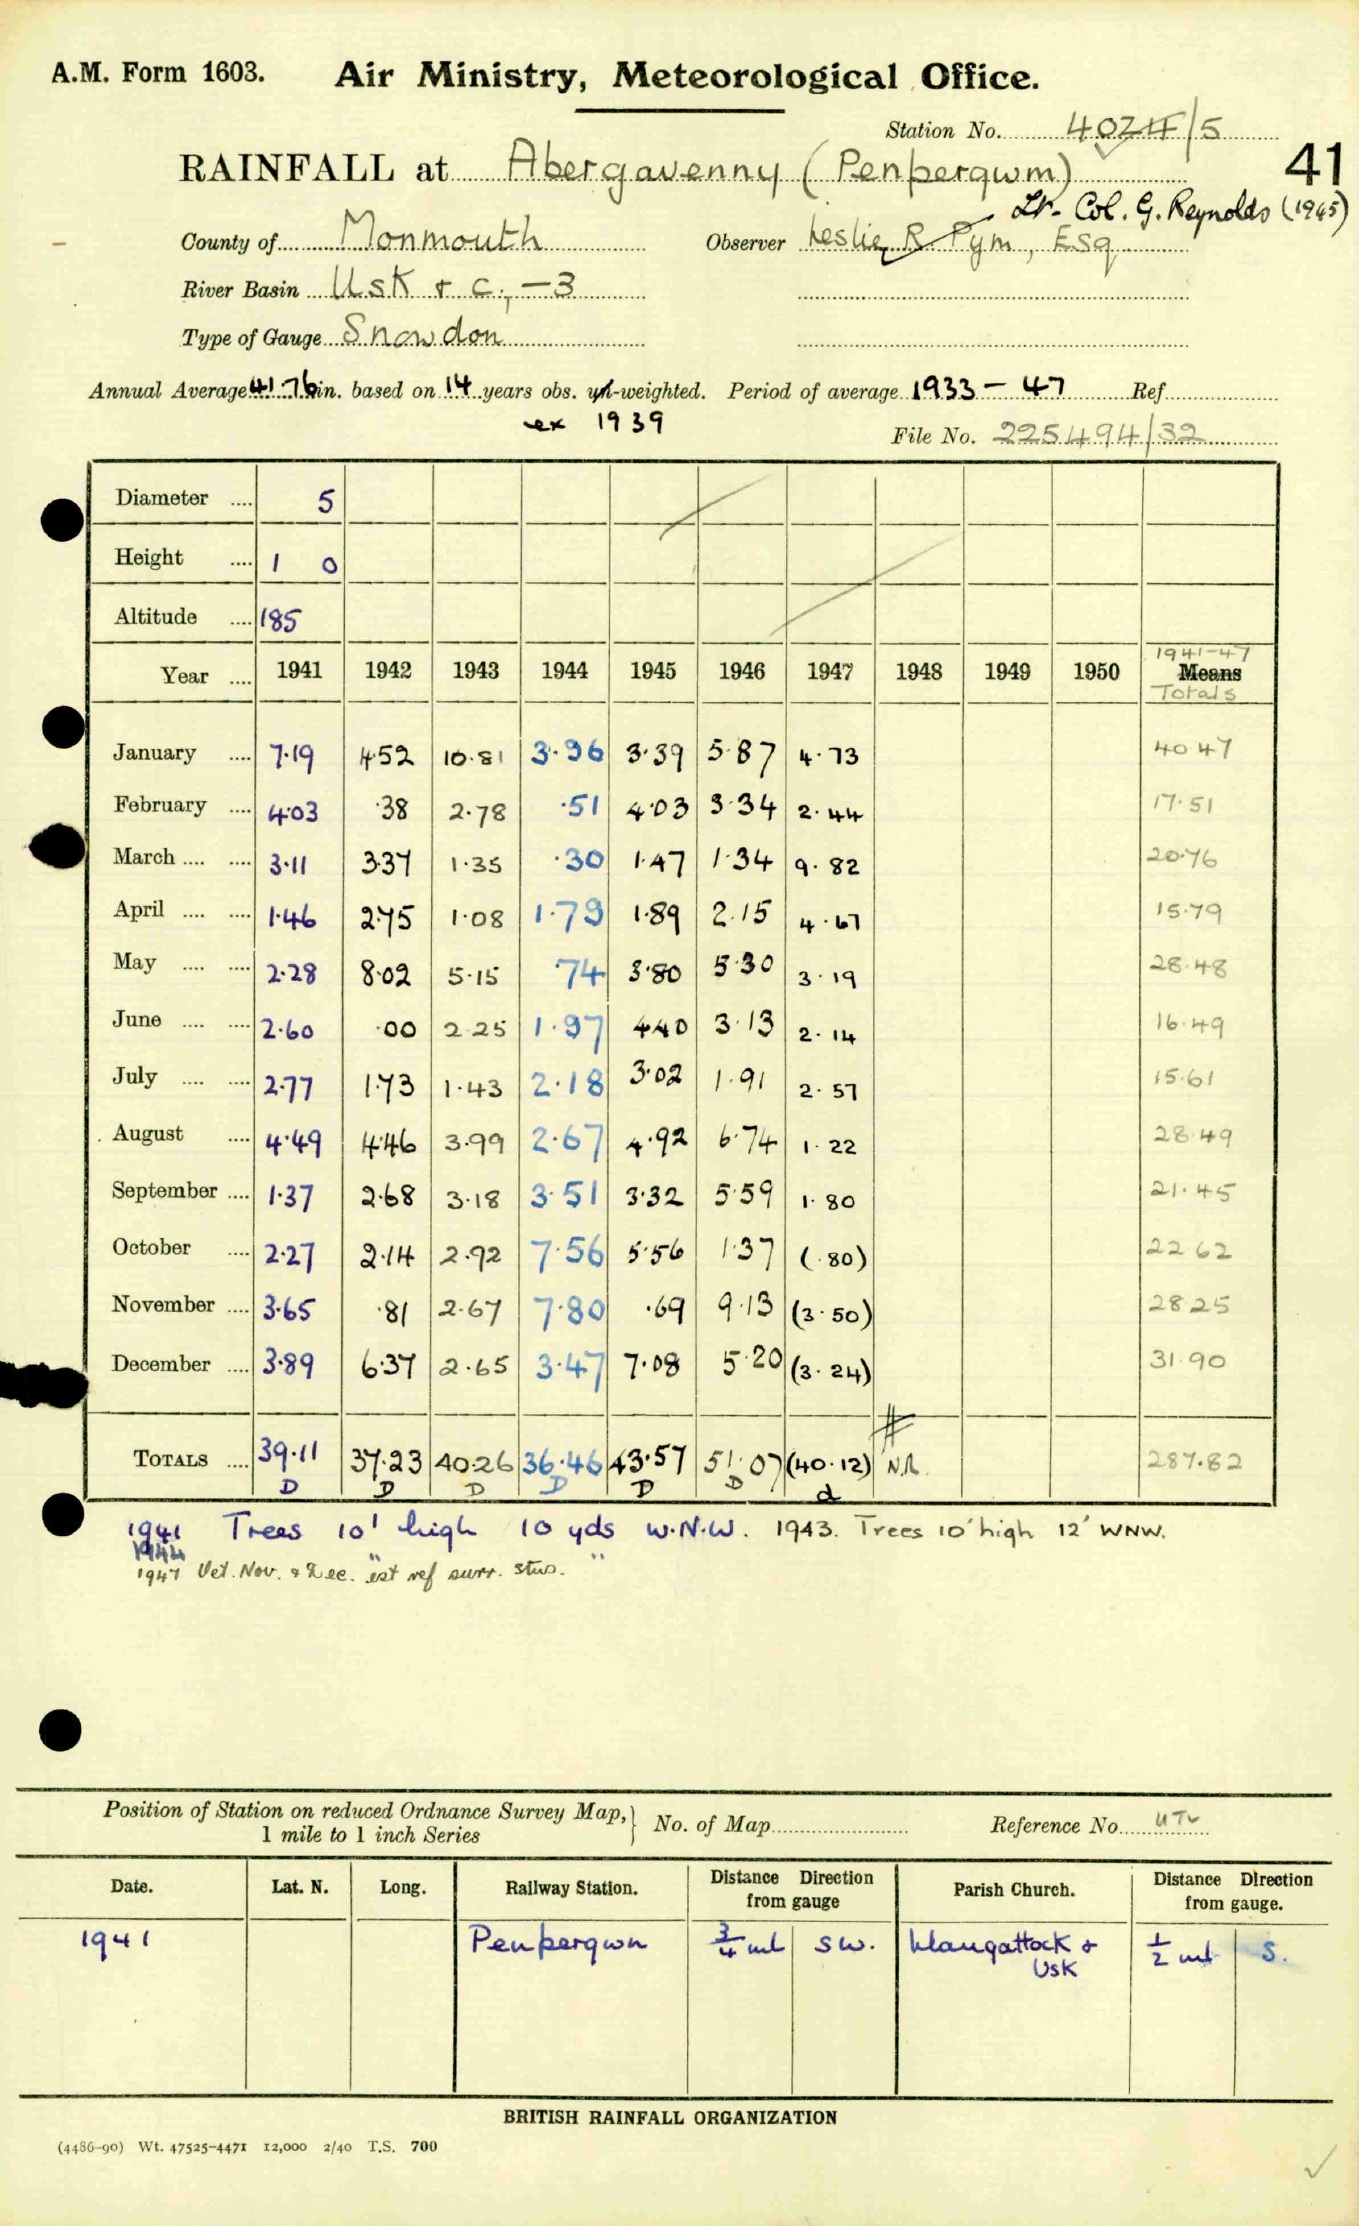 A.M. Form 1603. Air Ministry, Meteorological Office.
Station No. 4024/5
RAINFALL at Abergavenny (Penpergwm) 41
Lt. Col. G. Reynolds (1945)
County of Monmouth Observer Leslie R Pym, Esq
River Basin Usk & c, -3
Type of Gauge Snowdon
Annual Average 41.76 in. based on 14 years obs. un-weighted. Period of average 1933 - 47 Ref
ex 1939 File No. 225494/32
Diameter .... 5
Height .... 1 0
Altitude .... 185
1941-47
Year .... 1941 1942 1943 1944 1945 1946 1947 1948 1949 1950 Means
Totals
January .... 7.19 4.52 10.81 3.96 3.39 5.87 4.73 40.47
February .... 4.03 .38 2.78 .51 4.03 3.34 2.44 17.51
March .... .... 3.11 3.37 1.35 .30 1.47 1.34 9.82 20.76
April .... .... 1.46 2.75 1.08 1.79 1.89 2.15 4.67 15.79
May .... .... 2.28 8.02 5.15 .74 3.80 5.30 3.19 28.48
June .... .... 2.60 .00 2.25 1.97 4.40 3.13 2.14 16.49
July .... .... 2.77 1.73 1.43 2.18 3.02 1.91 2.57 15.61
August .... 4.49 4.46 3.99 2.67 4.92 6.74 1.22 28.49
September .... 1.37 2.68 3.18 3.51 3.32 5.59 1.80 21.45
October .... 2.27 2.14 2.92 7.56 5.56 1.37 (.80) 22 62
November .... 3.65 .81 2.67 7.80 .69 9.13 (3.50) 28 25
December .... 3.89 6.37 2.65 3.47 7.08 5.20 (3.24) 31.90
#
TOTALS .... 39.11 37.23 40.26 36.46 43.57 51.07 (40.12) N.R. 287.82
D D D D D D d
1941 Trees 10' high 10 yds W.N.W. 1943. Trees 10' high 12' WNW.
1944
1947 Oct. Nov. & Dec. "est ref surr. stns."
Position of Station on reduced Ordnance Survey Map, } No. of Map Reference No.
1 mile to 1 inch Series
Date. Lat. N. Long. Railway Station. Distance Direction from gauge Parish Church. Distance Direction from gauge.
1941 Penpergwn 3/4 ml SW. Llangattock & 1/2 ml S.
Usk
BRITISH RAINFALL ORGANIZATION
(4486-90) Wt. 47525-4471 12,000 2/40 T.S. 700